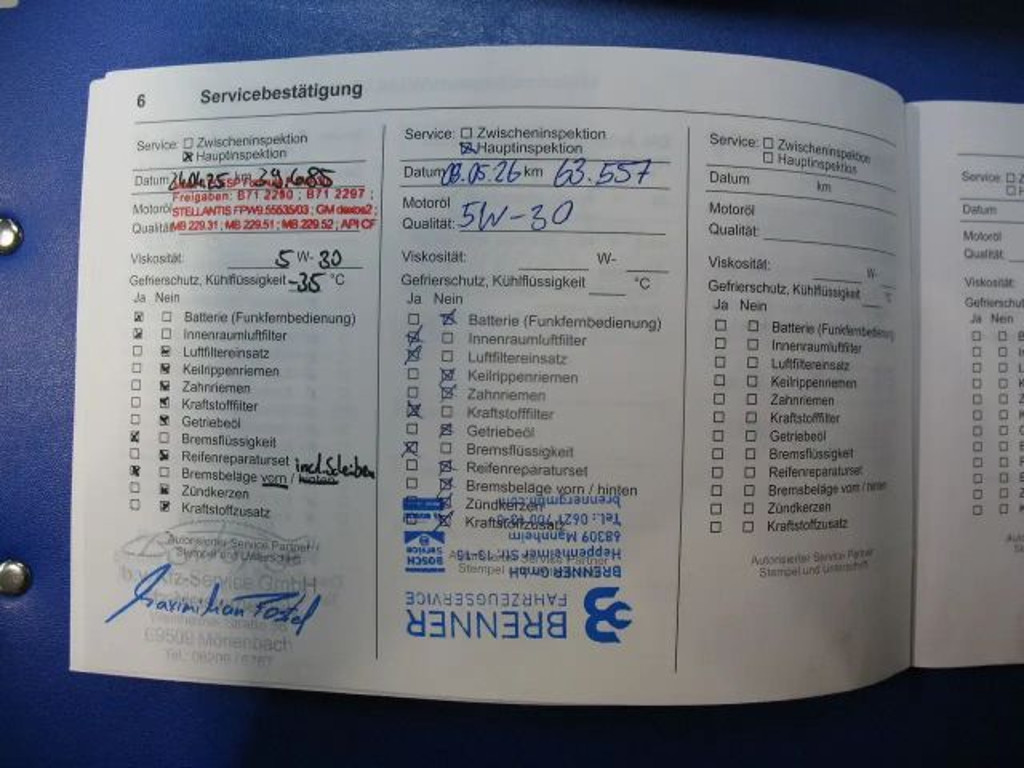 6 Servicebestätigung
Service: Zwischeninspektion
Hauptinspektion
Datum 24.04.25 km 39.685
Freigaben: B71 2290 ; B71 2297 ;
Motoröl STELLANTIS FPW9.55535/03 ; GM dexos2 ;
Qualität MB 229.31 ; MB 229.51 ; MB 229.52 ; API CF
Viskosität: 5 W- 30
Gefrierschutz, Kühlflüssigkeit -35 °C
Ja Nein
Batterie (Funkfernbedienung)
Innenraumluftfilter
Luftfiltereinsatz
Keilrippenriemen
Zahnriemen
Kraftstofffilter
Getriebeöl
Bremsflüssigkeit
Reifenreparaturset incl. Scheiben
Bremsbeläge vorn / hinten
Zündkerzen
Kraftstoffzusatz
Autorisierter Service Partner
Stempel und
Kfz-Service GmbH
Maximilian
69509 Mörlenbach
Service: Zwischeninspektion
Hauptinspektion
Datum 08.05.26 km 63.557
Motoröl
Qualität: 5W-30
Viskosität: W-
Gefrierschutz, Kühlflüssigkeit °C
Ja Nein
Batterie (Funkfernbedienung)
Innenraumluftfilter
Luftfiltereinsatz
Keilrippenriemen
Zahnriemen
Kraftstofffilter
Getriebeöl
Bremsflüssigkeit
Reifenreparaturset
Bremsbeläge vorn / hinten
Zündkerzen
Kraftstoffzusatz
Service Partner
Stempel
BRENNER
FAHRZEUGSERVICE
BRENNER GmbH
Heppenheimer Str. 13-15
68309 Mannheim
Tel.: 0621
BOSCH
Service
Service: Zwischeninspektion
Hauptinspektion
Datum km
Motoröl
Qualität:
Viskosität: W-
Gefrierschutz, Kühlflüssigkeit °C
Ja Nein
Batterie (Funkfernbedienung)
Innenraumluftfilter
Luftfiltereinsatz
Keilrippenriemen
Zahnriemen
Kraftstofffilter
Getriebeöl
Bremsflüssigkeit
Reifenreparaturset
Bremsbeläge vorn / hinten
Zündkerzen
Kraftstoffzusatz
Autorisierter Service Partner
Stempel und Unterschrift
Service:
Datum
Motoröl
Qualität:
Viskosität:
Ja Nein